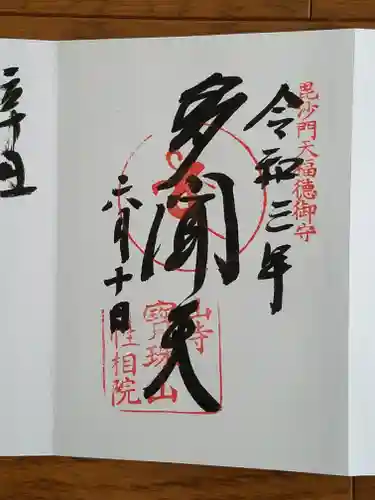 毘沙門天福徳御守
令和三年
多聞天
六月十日
山寺
寶珠山
性相院
辛丑